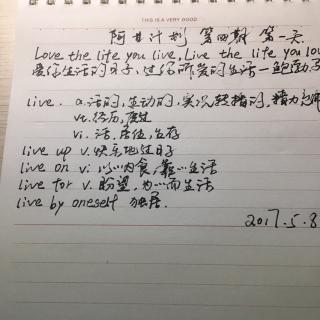 THIS IS A VERY GOOD
阿甘计划 第四期 第一天
Love the life you live, Live the life you lov
爱你生活的日子,过你所爱的生活—鲍勃
live. a.活的,生动的,实况转播的,精力充沛
vt.经历,度过
vi.活,居住,生存
live up v.快乐地过日子
live on vi.以…为食,靠…生活
live for v.盼望,为…而生活
live by oneself 独居
2017.5.8